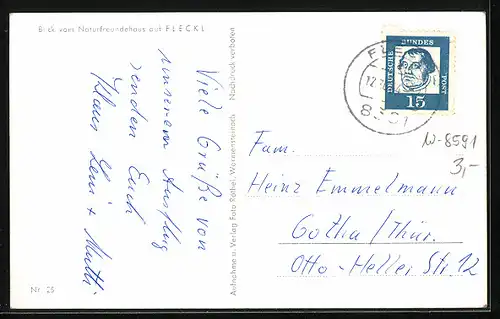 Blick vom Naturfreundehaus auf FLECKL
Viele Grüße von
unserem Ausflug
senden Euch
Klaus Leni + Mutti
Nr. 25
Aufnahme u. Verlag Foto Rödel, Warmensteinach Nachdruck verboten
DEUTSCHE BUNDESPOST
15
12.
8591
W-8591
3,-
Fam.
Heinz Emmelmann
Gotha/Thür.
Otto-Heller Str. 12